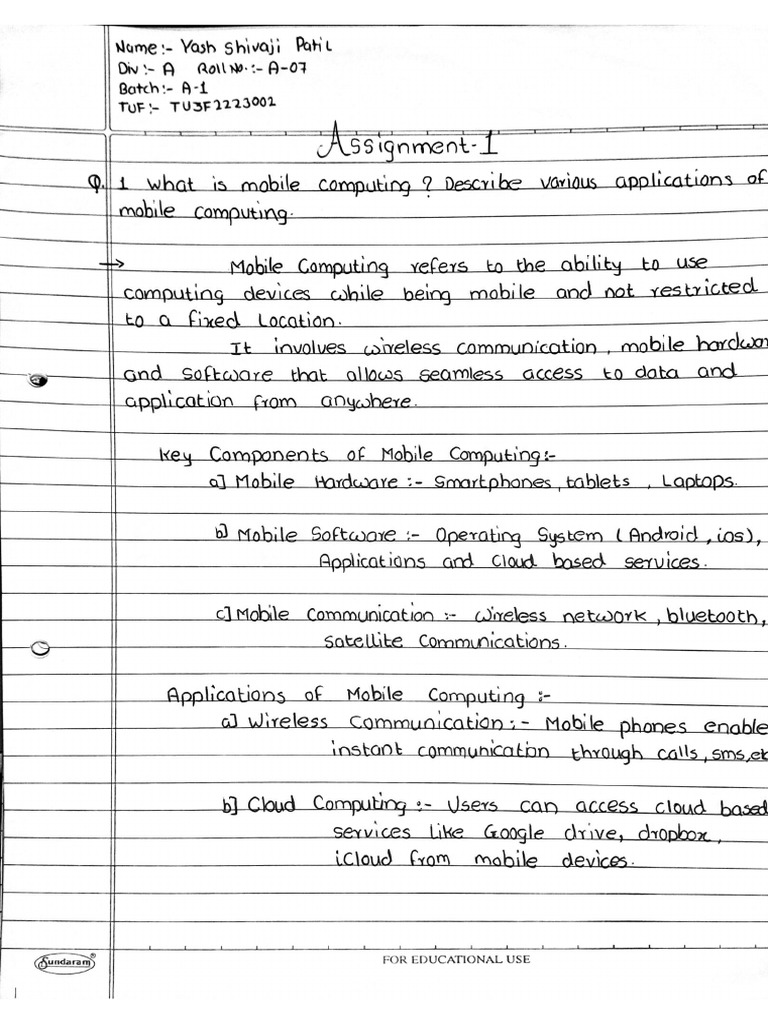 Name:- Yash Shivaji Patil
Div:- A Roll No.:- A-07
Batch:- A-1
TUF:- TU3F2223002
Assignment-1
Q.1 What is mobile computing? Describe various applications of
mobile computing.
→ Mobile Computing refers to the ability to use
computing devices while being mobile and not restricted
to a fixed Location.
It involves wireless communication, mobile hardwar
and software that allows seamless access to data and
application from anywhere.
Key Components of Mobile Computing:-
a] Mobile Hardware :- Smartphones, tablets, Laptops.
b] Mobile Software :- Operating System (Android, ios),
Applications and Cloud based services.
c] Mobile Communication :- wireless network, bluetooth,
satellite Communications.
Applications of Mobile Computing :-
a] Wireless Communication :- Mobile phones enable
instant communication through calls, sms, et
b] Cloud Computing :- Users can access cloud based
services like Google drive, dropbox,
iCloud from mobile devices.
Sundaram®
FOR EDUCATIONAL USE